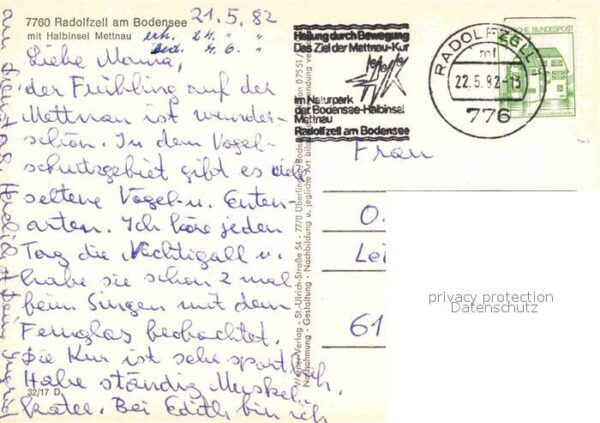 7760 Radolfzell am Bodensee
mit Halbinsel Mettnau
21.5.82
erh. 24. " "
4. 6. " "
Liebe Mama,
der Frühling auf der
Mettnau ist wunder-
schön. In dem Vogel-
schutzgebiet gibt es viele
seltene Vogel- u. Enten-
arten. Ich höre jeden
Tag die Nachtigall u.
habe sie schon 2 mal
beim Singen mit dem
Fernglas beobachtet.
Die Kur ist sehr sportlich.
Habe ständig Muskel-
kater. Bei Edith bin ich
am Dienstag. Herzlichst Deine Ingrid
32/17 D
Werner-Verlag - St.-Ulrich-Straße 54 - 7770 Überlingen/Bodensee
Nachahmung - Gestaltung - Nachbildung u. jegliche Art
Heilung durch Bewegung
Das Ziel der Mettnau-Kur
Im Naturpark
der Bodensee-Halbinsel
Mettnau
Radolfzell am Bodensee
RADOLFZELL 1
ml
22.5.82-13
776
DEUTSCHE BUNDESPOST
Frau
O.
Lei
61
privacy protection
Datenschutz